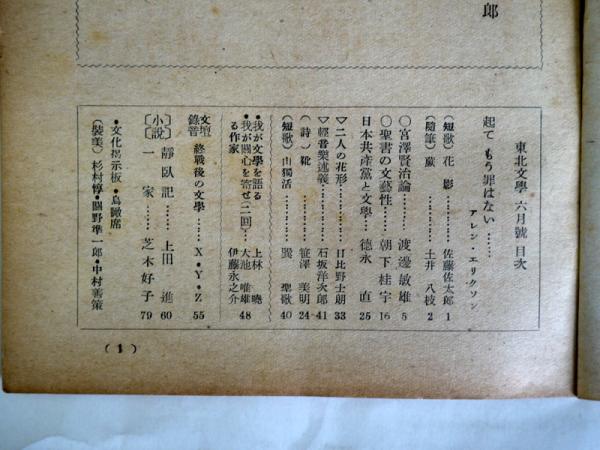 郎
東北文學 六月號 目次
起て もう罪はない……アレン・エリクソン
(短歌) 花影…………佐藤佐太郎 1
(隨筆) 蕨…………土井八枝 2
〇宮澤賢治論…………渡邊敏雄 5
〇聖書の文藝性…………朝下桂宇 16
日本共産黨と文學……德永直 25
▽二人の花形…………日比野士朗 33
▽輕音樂述義…………石坂洋次郎 41
(詩) 靴…………笹澤美明 24
(短歌) 山獨活…………巽聖歌 40
●我が文學を語る……上林曉
●我が關心を寄せる作家 二、三回…大池唯雄 伊藤永之介 48
文壇錄音 終戰後の文學……X・Y・Z 55
〔小說〕靜臥記……上田進 60
一家……芝木好子 79
●文化揭示板●鳥瞰席
(裝美) 杉村惇●關野準一郎●中村善策
(1)